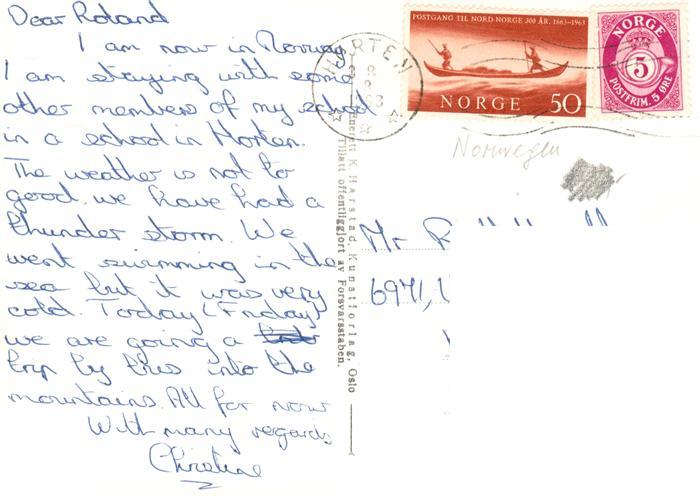 Dear Roland
I am now in Norway
I am staying with some
other members of my school
in a school in Horten.
The weather is not to
good. we have had a
thunder storm. We
went swimming in the
sea but it was very
cold. Today (Friday)
we are going a
trip by bus into the
mountains. All for now
With many regards
Christine
Enerett K. Harstad, Kunstforlag, Oslo
Tillatt offentliggjort av Forsvarsstaben.
HORTEN
POSTGANG TIL NORD-NORGE 300 ÅR. 1663-1963
NORGE 50
NORGE
5
POSTFRIM. 5 ØRE
Norwegen
Mr R
6971,